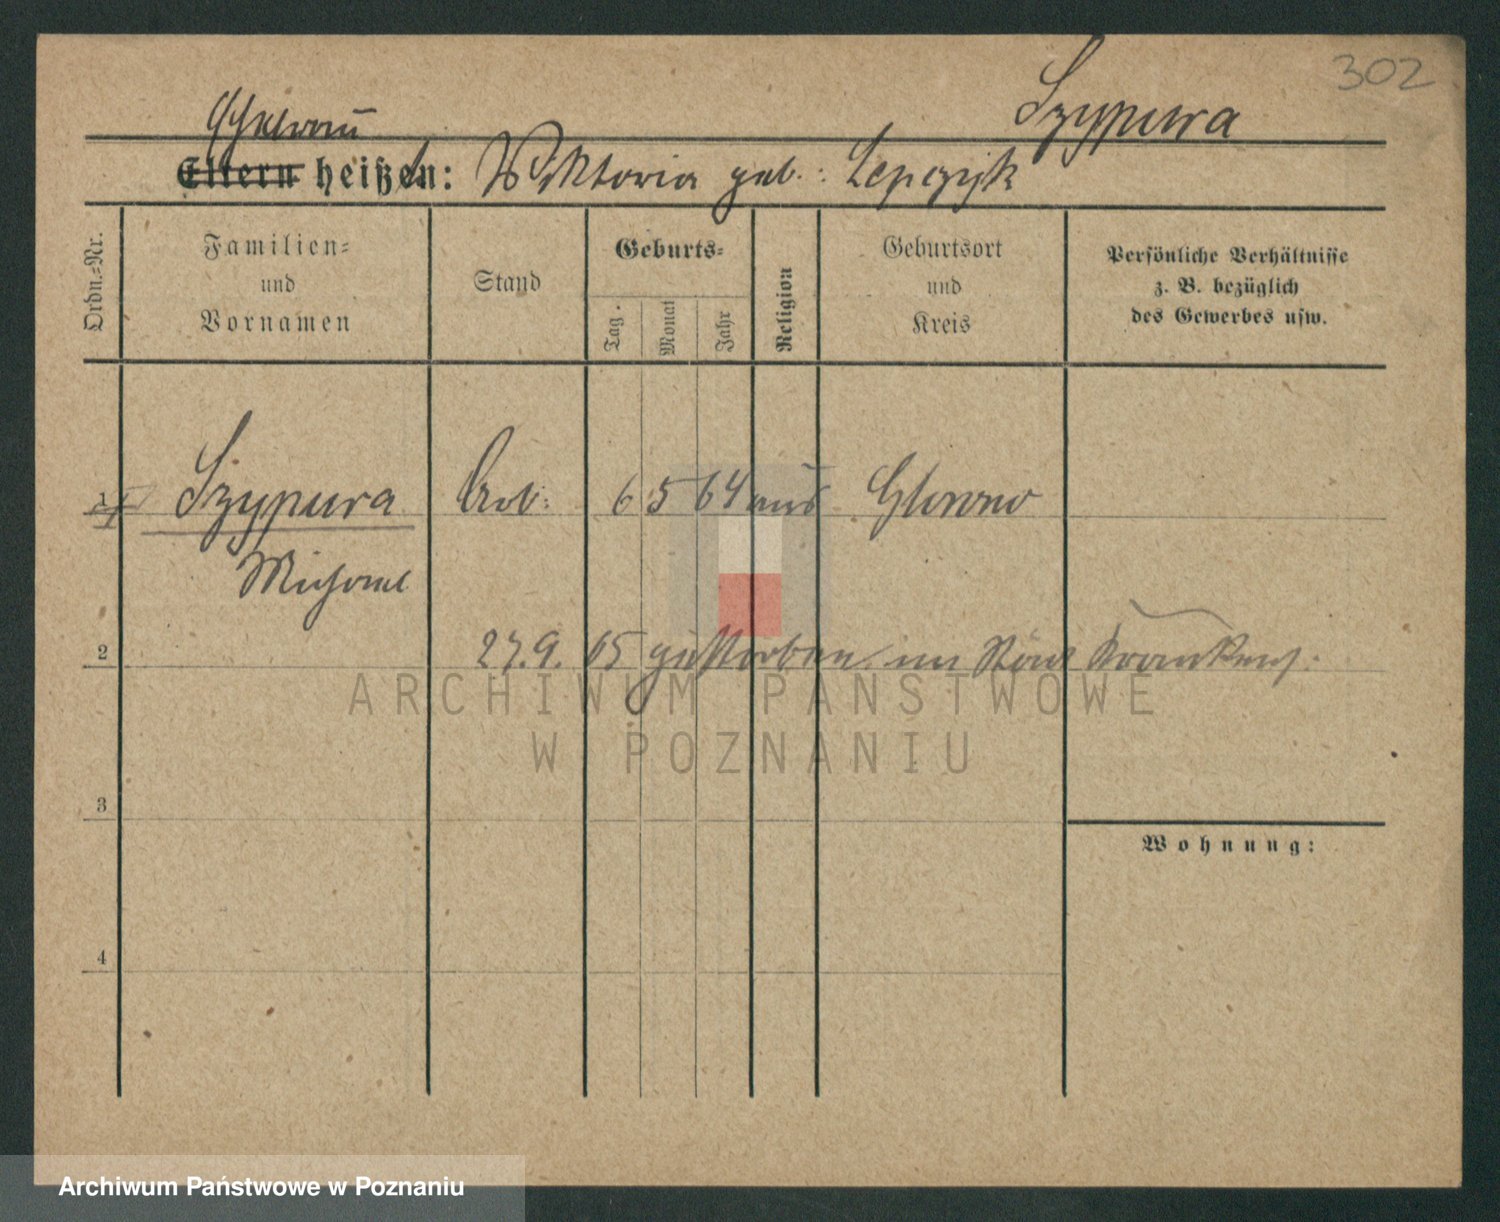 302
Szypura
Ehefrau
Eltern heißen: Viktoria geb. Lepczyk
Ordn.-Nr.
Familien-
und
Vornamen
Stand
Geburts-
Tag.
Monat
Jahr
Religion
Geburtsort
und
Kreis
Persönliche Verhältnisse
z. B. bezüglich
des Gewerbes usw.
1 Szypura Arb. 6 5 64 Glowno
Michael
2 27.9. 05 gestorben im Städt Krankenh.
ARCHIWUM PAŃSTWOWE
W POZNANIU
3
Wohnung:
4
Archiwum Państwowe w Poznaniu